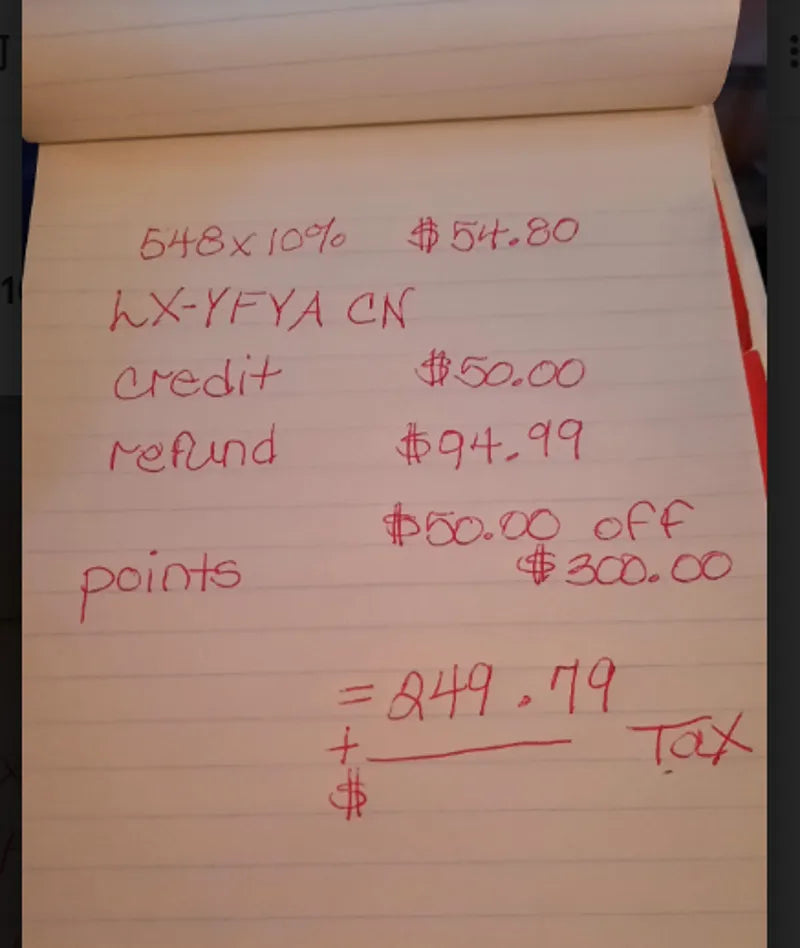 548x10% $54.80
LX-YFYA CN
credit $50.00
refund $94.99
$50.00 off
points $300.00
= 249.79
+ Tax
$